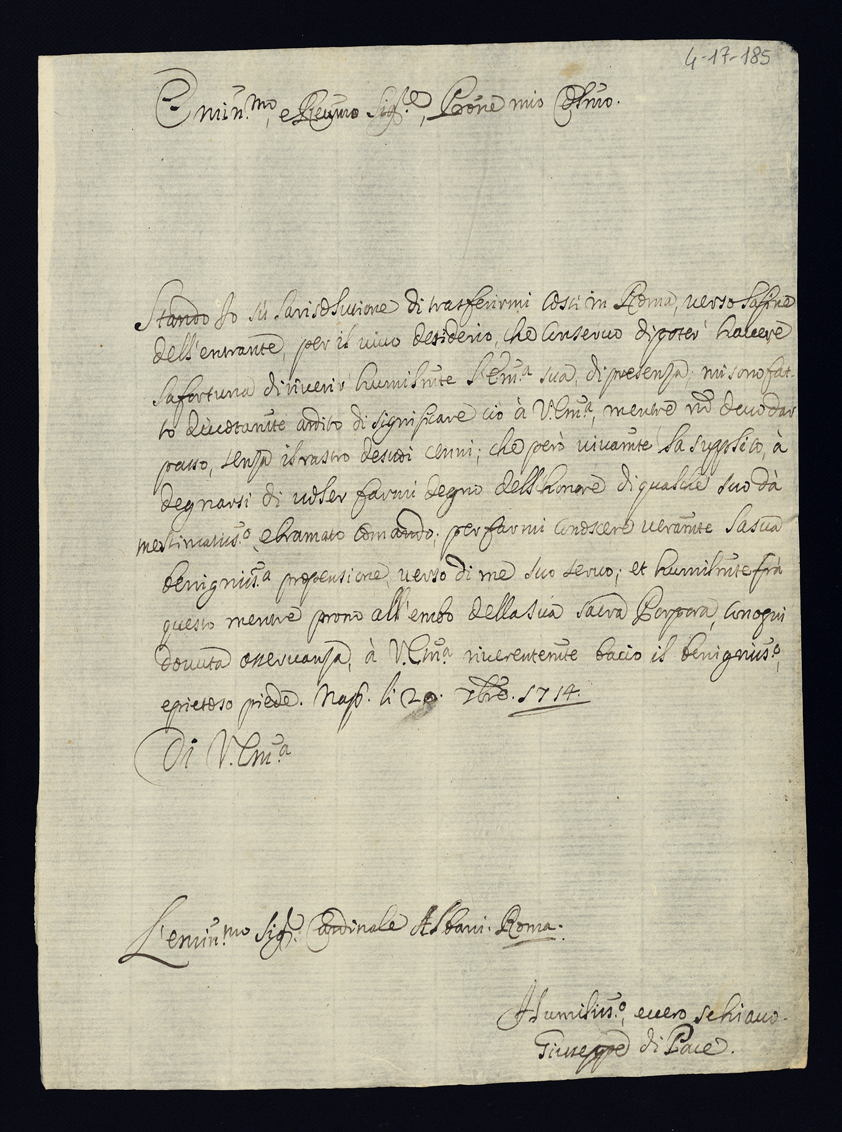 4-17-185
Emin.mo, e Reumo Sig.re, Prone mio Colmo.
Stando Io sù la risolutione di trasferirmi costì in Roma, verso la fine
dell'entrante, per il vivo desiderio, che conservo di poter' havere
la fortuna di riverir' humilmte l'Em.a sua, di presenza; mi sono fat-
to divotamte ardito di significare ciò à V.Em.a, mentre nõ devo dar
passo, senza il rastro de suoi cenni; che però vivamte la supplico, à
degnarsi di voler farmi degno dell'honore di qualche suo dà
me stimatiss.o, e bramato comando. per farmi conoscere veramte la sua
benigniss.a propensione, verso di me suo servo; et humilmte frà
questo mentre prono all'embo della sua sacra Porpora, con ogni
dovuta osservanza, à V.Em.a riverentemte bacio il benigniss.o,
e pietoso piede. Nap. li 20. 7bre. 1714.
Di V.Em.a
L'emin.mo Sig.r Cardinale Albani. Roma.
Humiliss.o, e vero schiavo.
Giuseppe di Pace.